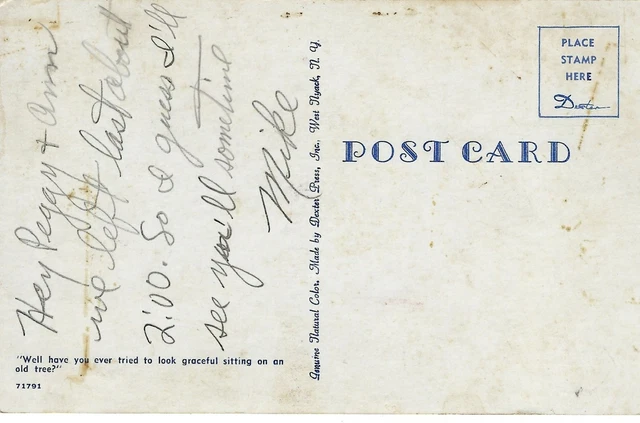 Hey Peggy + Ann
we left last about
2:00. So I guess I'll
see you'll sometime
Mike
"Well have you ever tried to look graceful sitting on an
old tree?"
71791
Genuine Natural Color. Made by Dexter Press, Inc., West Nyack, N. Y.
POST CARD
PLACE
STAMP
HERE
Dexter